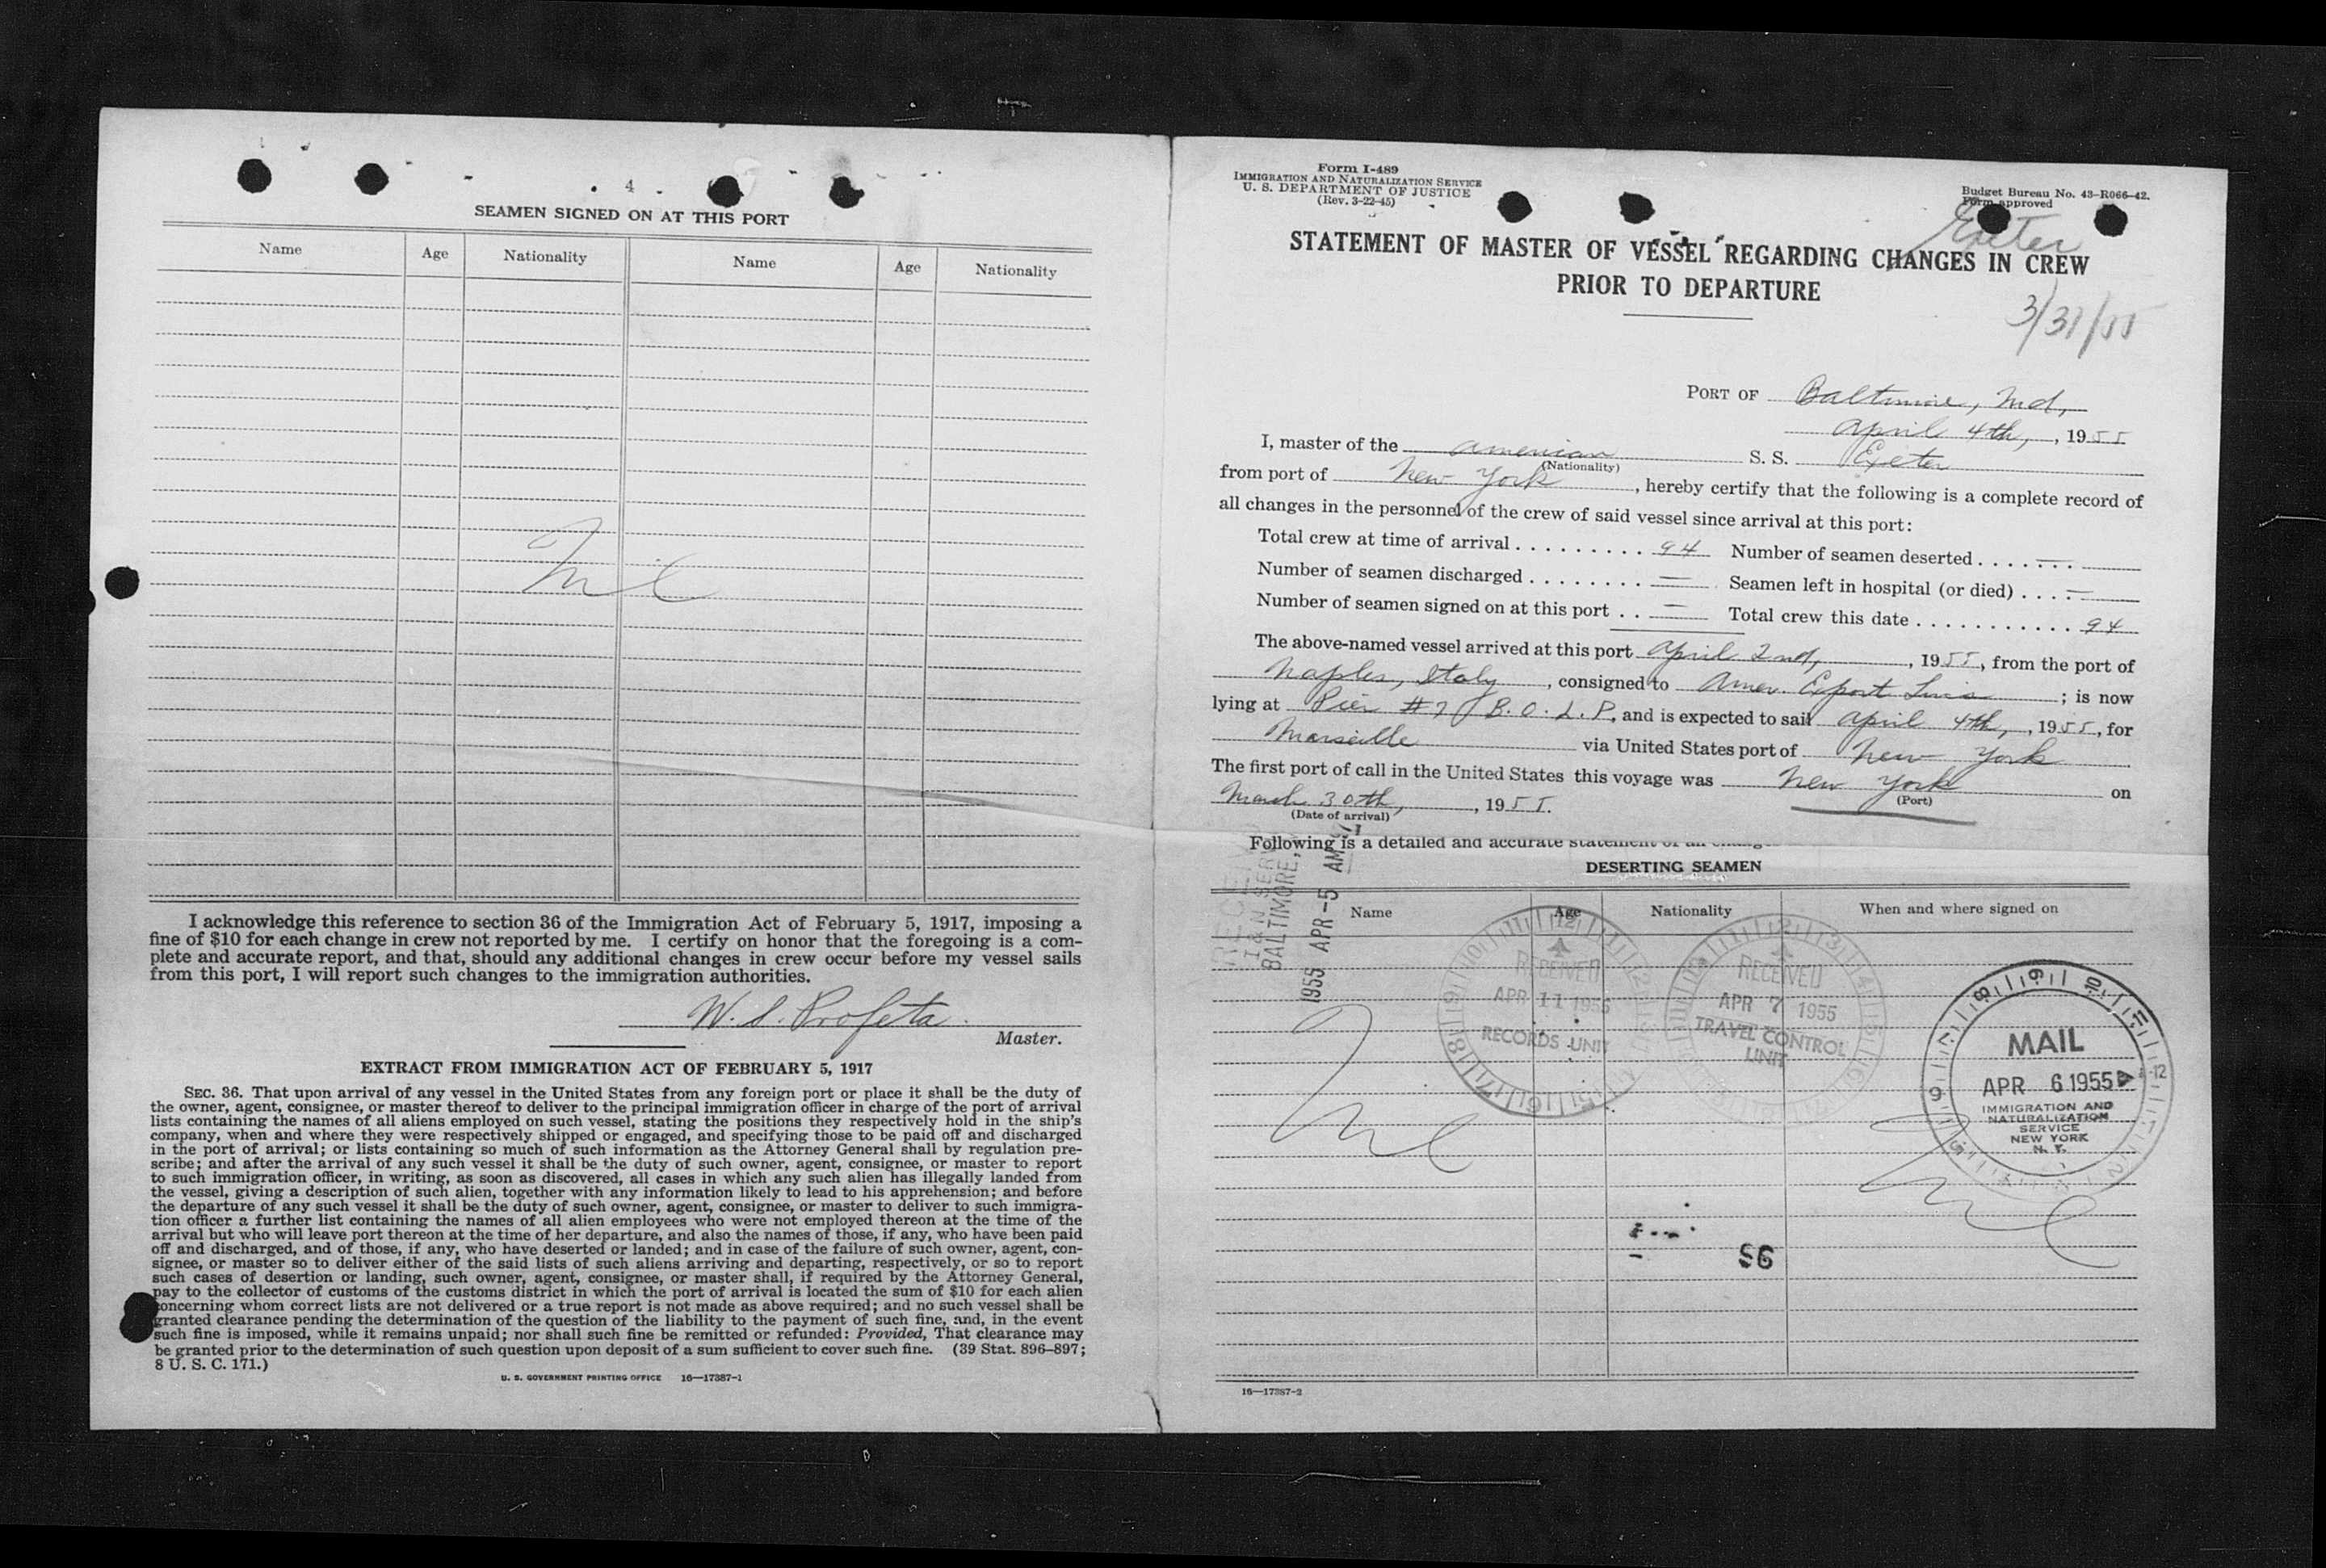 4
SEAMEN SIGNED ON AT THIS PORT
Name Age Nationality Name Age Nationality
Nil
I acknowledge this reference to section 36 of the Immigration Act of February 5, 1917, imposing a
fine of $10 for each change in crew not reported by me. I certify on honor that the foregoing is a com-
plete and accurate report, and that, should any additional changes in crew occur before my vessel sails
from this port, I will report such changes to the immigration authorities.
W. S. Profeta
Master.
EXTRACT FROM IMMIGRATION ACT OF FEBRUARY 5, 1917
SEC. 36. That upon arrival of any vessel in the United States from any foreign port or place it shall be the duty of
the owner, agent, consignee, or master thereof to deliver to the principal immigration officer in charge of the port of arrival
lists containing the names of all aliens employed on such vessel, stating the positions they respectively hold in the ship's
company, when and where they were respectively shipped or engaged, and specifying those to be paid off and discharged
in the port of arrival; or lists containing so much of such information as the Attorney General shall by regulation pre-
scribe; and after the arrival of any such vessel it shall be the duty of such owner, agent, consignee, or master to report
to such immigration officer, in writing, as soon as discovered, all cases in which any such alien has illegally landed from
the vessel, giving a description of such alien, together with any information likely to lead to his apprehension; and before
the departure of any such vessel it shall be the duty of such owner, agent, consignee, or master to deliver to such immigra-
tion officer a further list containing the names of all alien employees who were not employed thereon at the time of the
arrival but who will leave port thereon at the time of her departure, and also the names of those, if any, who have been paid
off and discharged, and of those, if any, who have deserted or landed; and in case of the failure of such owner, agent, con-
signee, or master so to deliver either of the said lists of such aliens arriving and departing, respectively, or so to report
such cases of desertion or landing, such owner, agent, consignee, or master shall, if required by the Attorney General,
pay to the collector of customs of the customs district in which the port of arrival is located the sum of $10 for each alien
concerning whom correct lists are not delivered or a true report is not made as above required; and no such vessel shall be
granted clearance pending the determination of the question of the liability to the payment of such fine, and, in the event
such fine is imposed, while it remains unpaid; nor shall such fine be remitted or refunded: Provided, That clearance may
be granted prior to the determination of such question upon deposit of a sum sufficient to cover such fine. (39 Stat. 896-897;
8 U. S. C. 171.)
U. S. GOVERNMENT PRINTING OFFICE 16—17387-1
Form I-489
IMMIGRATION AND NATURALIZATION SERVICE
U. S. DEPARTMENT OF JUSTICE
(Rev. 3-22-45)
Budget Bureau No. 43-R066-42.
Form approved
Exeter
STATEMENT OF MASTER OF VESSEL REGARDING CHANGES IN CREW
PRIOR TO DEPARTURE
3/31/55
PORT OF Baltimore, Md,
April 4th, , 1955
I, master of the American S. S. Exeter
(Nationality)
from port of New York , hereby certify that the following is a complete record of
all changes in the personnel of the crew of said vessel since arrival at this port:
Total crew at time of arrival . . . . . . . . . 94 Number of seamen deserted . . . . . . . —
Number of seamen discharged . . . . . . . . — Seamen left in hospital (or died) . . . . —
Number of seamen signed on at this port . . — Total crew this date . . . . . . . . . . . 94
The above-named vessel arrived at this port April 2nd, , 1955, from the port of
Naples, Italy , consigned to Amer. Export Lines ; is now
lying at Pier #7 B. O. L. P, and is expected to sail April 4th, , 1955, for
Marseille via United States port of New York
The first port of call in the United States this voyage was New York on
(Port)
March 30th, , 1955.
(Date of arrival)
Following is a detailed and accurate statement of all
DESERTING SEAMEN
Name Age Nationality When and where signed on
I & N SERV
BALTIMORE,
1955 APR-5 AM
RECEIVED
APR 11 1955
RECORDS UNIT
RECEIVED
APR 7 1955
TRAVEL CONTROL
UNIT
MAIL
APR 6 1955
IMMIGRATION AND
NATURALIZATION
SERVICE
NEW YORK
N. Y.
Nil
Nil
S6
16—17387-2